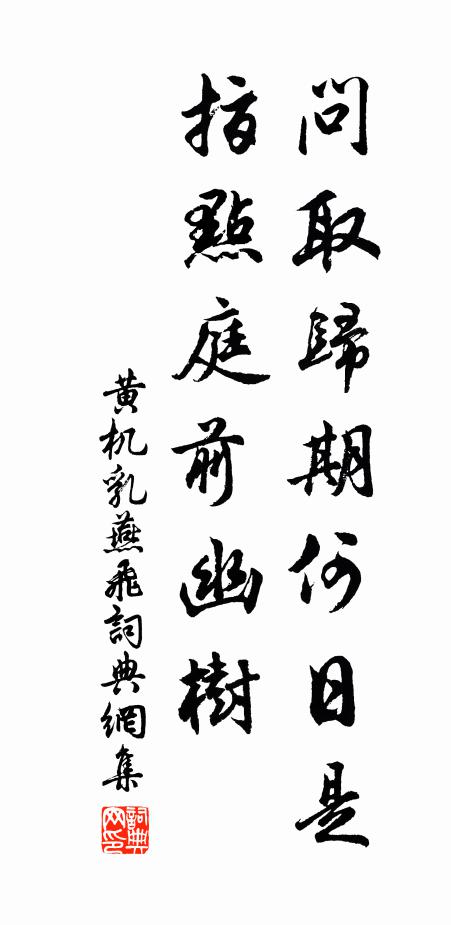 問取歸期何日是
指點庭前幽樹
黄机乳燕飛詞典網集
詞典网印